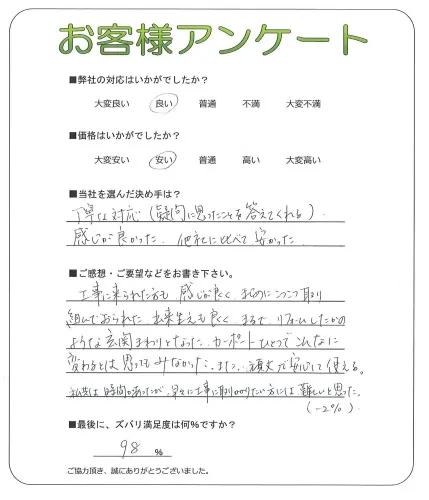 お客様アンケート
■弊社の対応はいかがでしたか？
大変良い　良い　普通　不満　大変不満
■価格はいかがでしたか？
大変安い　安い　普通　高い　大変高い
■当社を選んだ決め手は？
丁寧な対応（疑問に思ったことを答えてくれる）.
感じが良かった. 他社に比べて安かった.
■ご感想・ご要望などをお書き下さい。
工事に来られた方も 感じが良く、まじめにコツコツ取り
組んでおられた. 出来生えも良く まるで リフォームしたかの
ような玄関まわりとなった. カーポートひとつでこんなに
変わるとは思ってもみなかった. また、頑丈で安心して使える。
私共は時間があったが、早々に工事に取りかかりたい方には難しいと思った.
(-2%)
■最後に、ズバリ満足度は何％ですか？
98 ％
ご協力頂き、誠にありがとうございました。